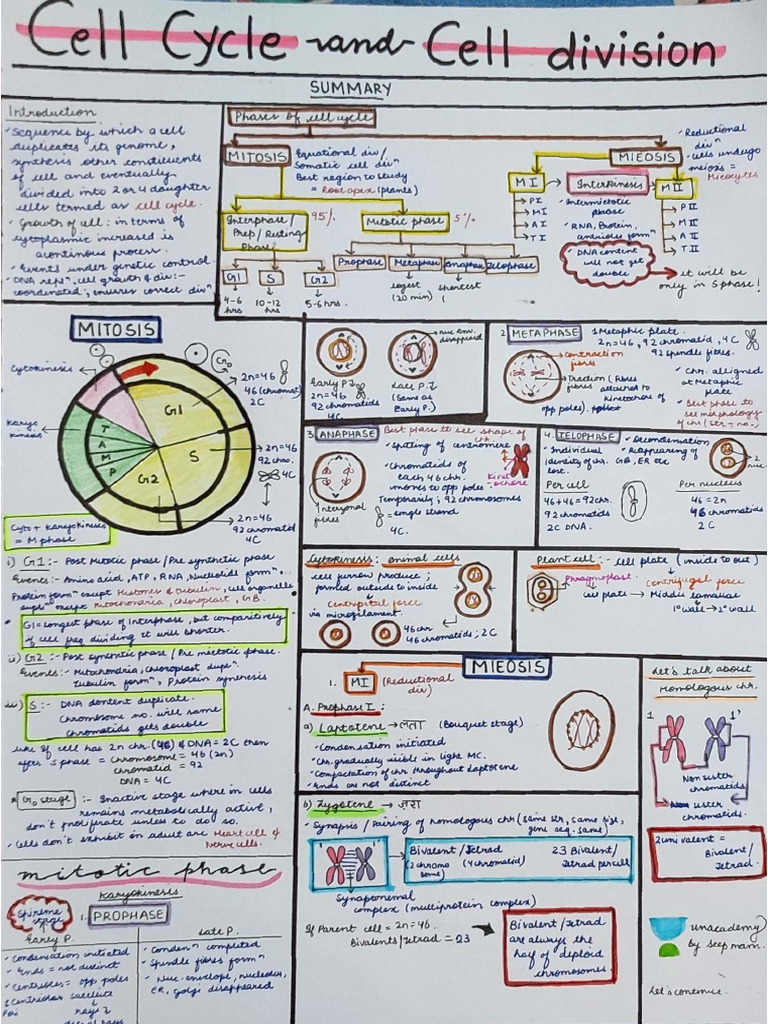 Cell Cycle and Cell division
SUMMARY
Introduction
Sequence by which a cell
duplicates its genome,
synthesis other constituents
of cell and eventually
divided into 2 or 4 daughter
cells termed as cell cycle.
Growth of cell: in terms of
cytoplasmic increased is
a continous process.
Events under genetic control.
DNA repn, cell growth & div:-
coordinated; ensures correct divn
Phases of cell cycle
MITOSIS
Equational div/
Somatic cell divn
Best region to study
= Root apex (plants)
Interphase /
Prep / Resting
Phase
95%
Mitotic phase
5%
G1
S
G2
4-6
hrs
10-12
hrs
5-6 hrs.
Prophase
Metaphase
Anaphase
Telophase
logest
(20 min)
shortest
MIEOSIS
Reductional
divn
cells undego
meiosis =
Mieocytes
M I
Interkinesis
M II
P I
M I
A I
T I
Intermietotic
phase
RNA, Protein,
DNA content
will not get
double
P II
M II
A II
T II
it will be
only in S phase!
MITOSIS
Cytokinesis
Karyo
kinesis
G0
G1
S
G2
T
A
M
P
2n=46
46 (chromat)
2C
2n=46
92 chro.
4C
2n=46
92 chromatid
4C
Cyto + Karyokinesis
= M phase
i) G1:- Post Mitotic phase / Pre synthetic phase
Events:- Amino acid, ATP, RNA, Nucleotid formn,
Protein formn except Histones & tubulin, cell organelle
dupln except mitochondria, chloroplast, GB.
G1= Longest phase of Interphase, but comparitively
if cell freq dividing it will shorter.
ii) G2 :- Post synthetic phase / Pre mietotic phase.
Events:- Mitochondria, Chloroplast dupln.
Tubulin formn, Protein synenesis
iii) S :- DNA dontent duplicate.
Chrombsome no. will same
chromatids gets double
like if cell has 2n chr. (46) & DNA = 2C then
after S phase = chromosome = 46 (2n)
chromatid = 92
DNA = 4C
G0 stage :- Inactive stage where in cells
remains metabolically active,
don't proliferate unless to do so.
Cells don't exhibit in aduet are Heart cell &
Nerve cells.
mitotic phase
Karyokinesis
Spireme
stage
1.
PROPHASE
Early P.
Condensation initiated
Ends = not distinct
Centrioles = opp poles
Late P.
Conden n completed
Spindle fibres formn
Nuc. envelope, nucleolus,
ER, Golgi disappeared
Early P.
2n=46
92 chromatids
4C
nuc env.
disappeared
Late P.
(Same as
Early P.)
2 METAPHASE
1. Metaphic plate.
2n=46, 92 chromatid, 4C
92 spindle fibres.
contraction
fibres
Traction (fibres
attached to
kinetochore of
opp poles).
Chr. alligned
at Metaphic
plate
Best phase to
see morphology
of chr (str + no.)
3 ANAPHASE
Best phase to see shape of
chr.
Spliting of centromere
Chromatids of
each 46 chr.
moves to opp poles
Temporarily; 92 chromosomes
= single stand
4C.
Interzonal
fibres
Kinet
ochore
4. TELOPHASE
Individual
identity of chr.
lost.
Decondensation
Reappearing of
GB, ER etc
2 nuc.
Per cell
46+46 = 92 chr.
92 chromatids
2C DNA.
Per nucleus
46 = 2n
46 chromatids
2C
Cytokinesis: animal cells
cell furrow produce;
formed outside to inside
Centripetal force
via microfilament.
46 chr
46 chromatids, 2C
Plant cell :- cell plate (inside to out)
Phragmoplast
Centrifugel force
cell plate → Middle lamallae
1° wall → 2° wall
MIEOSIS
1. MI (Reductional
div)
A. Prophase I :
a) Laptotene → लता (Bouquet stage)
Condensation initiated
Chr. gradually visible in light MC.
Compactation of chr throughout Leptotene
Ends are not distinct
b) Zygotene → ज़रा
Synapsis / Pairing of homologous chr (same str, same size,
gene seq. same)
Bivalent / Tetrad
(2 chromo
some)
(4 chromatid)
23 Bivalent /
Tetrad per cell
Synaptonemal
complex (multiprotein complex)
If Parent cell = 2n = 46.
Bivalents/tetrad = 23
Bivalent / tetrad
are always the
half of deploid
chromosomes.
Let's talk about
Homologous chr.
1
1'
Non sister
chromatids
sister
chromatids.
2 univalent =
Bivalent/
Tetrad.
unacademy
by seep mam.
Let's continue.